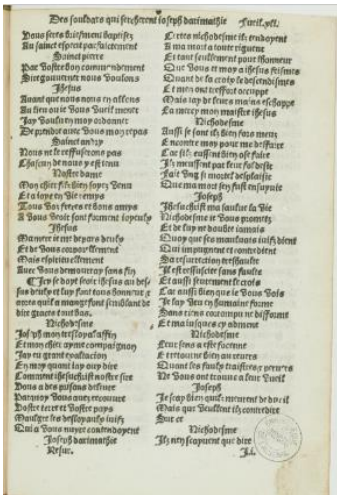 Des souldars qui sercherent ioseph darimathie Fueil.xli.
Vous seres vraiement baptisez
Au sainct esperit parfaictement
Sainct pierre
Par vostre bon commandement
Sire gouuerner nous voulons
Jhesus
Auant que nous nous en allons
Au lieu ou ie vous vueil mener
Jay voulu moy ordonner
De prendre auec vous mon repas
Sainct andry
Nous ne le refuserons pas
Chascun de nous y est tenu
Nostre dame
Mon chier filz bien soyez venu
Et a ioye en vie remys
Tous voz freres et bons amys
A vous veoir sont forment ioyeulx
Jhesus
Ma mere ie ne beuray de eulx
Et de vous corporellement
Mais espirituellement
Auec vous demourray sans fin
Icy se doyt seoir ihesus au
sus deulx et luy font tous honneur
apres quil a mange font semblant de
dire graces tout bas.
Nichodesme
Joseph mon tresloyal affin
Et mon chier ayme compaignon
Jay eu grant exultacion
En moy quant iay ouy dire
Comment ihesuchrist nostre sire
Vous a des prisons deliure
Par quoy vous auez recouure
Vostre terre et vostre pays
Maulgre les desloyaulx iuifz
Qui a vous nuyre contendoyent
Joseph darimathie
Certes nichodesme ilz tendoyent
A ma mort a toute rigueur
Et tant seullement pour lhonneur
Que vous et moy a ihesus feismes
Quant de la croix le descendismes
Et mon ont treffort occupe
Mais iay de leurs mains eschappe
La mercy mon maistre ihesus
Nichodesme
Aussi se sont ilz bien fors meuz
Encontre moy pour me deffaire
Car silz eussent bien ose faire
Ilz meussent par leur fol despit
Fait vng si mortel desplaisir
Que ma mort sen fust ensuyuit
Joseph
Jhesuchrist ma saulue la vie
Nichodesme ie vous prometz
Et de luy ne doubte iamais
Quoy que ses mauluais iuifz dient
Qui impugnent et contredient
Sa resurection treshaulte
Il est resuscite sans faulte
Et aussi fermement le crois
Car aussi bien que ie vous vois
Je lay veu en humaine forme
Sans riens corrompu ne difforme
Et ma iusques cy admene
Nichodesme
Leur sens a este forcenne
Et retourne bien au reuers
Quant les faulx traistres peruers
Ne vous ont trouue a leur vueil
Joseph
Je scay bien quilz meinent de dueil
Mais que veullent ilz contredire
Sur ce
Nichodesme
Ilz ne scauent que dire